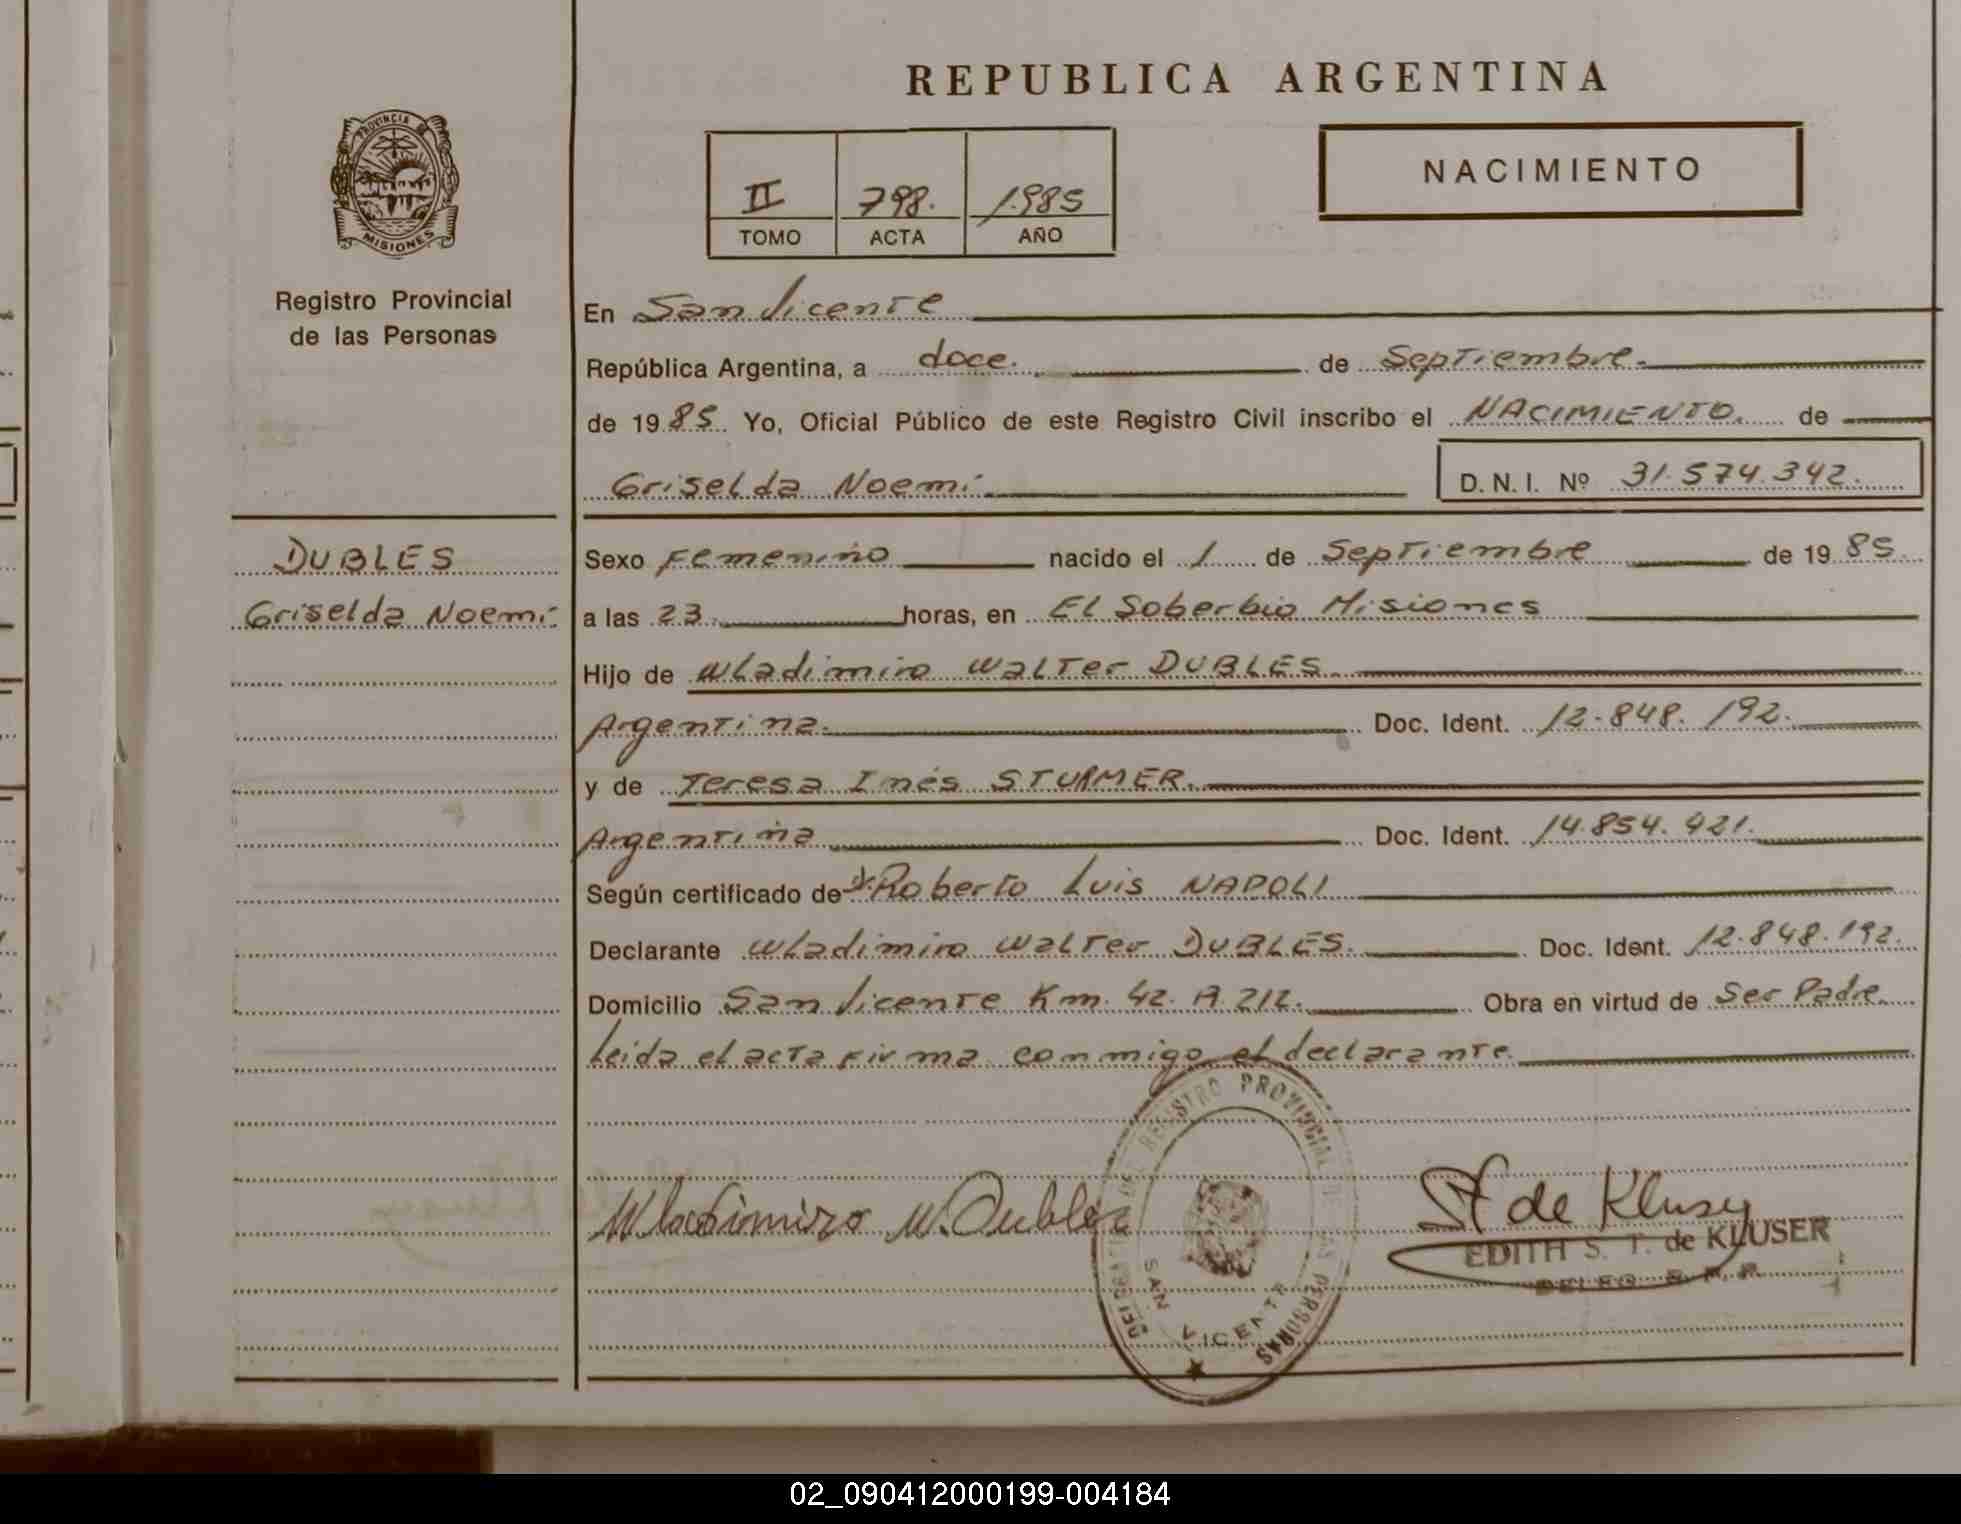 REPUBLICA ARGENTINA
PROVINCIA DE
MISIONES
Registro Provincial
de las Personas
II 798. 1985
TOMO ACTA AÑO
NACIMIENTO
En San Vicente
República Argentina, a doce. de Septiembre.
de 1985. Yo, Oficial Público de este Registro Civil inscribo el NACIMIENTO. de
Griselda Noemí D.N.I. Nº 31.574.342.
DUBLES
Griselda Noemí
Sexo Femenino nacido el 1 de Septiembre de 1985.
a las 23 horas, en El Soberbio Misiones
Hijo de Wladimiro Walter DUBLES.
Argentina. Doc. Ident. 12.848.192.
y de Teresa Inés STURMER.
Argentina Doc. Ident. 14.854.421.
Según certificado de Dr. Roberto Luis NAPOLI
Declarante Wladimiro Walter DUBLES. Doc. Ident. 12.848.192.
Domicilio San Vicente Km. 42. R. 212. Obra en virtud de Ser Padre
Leida el acta firma conmigo el declarante.
Wladimiro W. Dubles
DELEGACION DEL REGISTRO PROVINCIAL DE LAS PERSONAS
SAN VICENTE
St de Kluser
EDITH S. T. de KLUSER
DELEG. R. P. P.
02_090412000199-004184